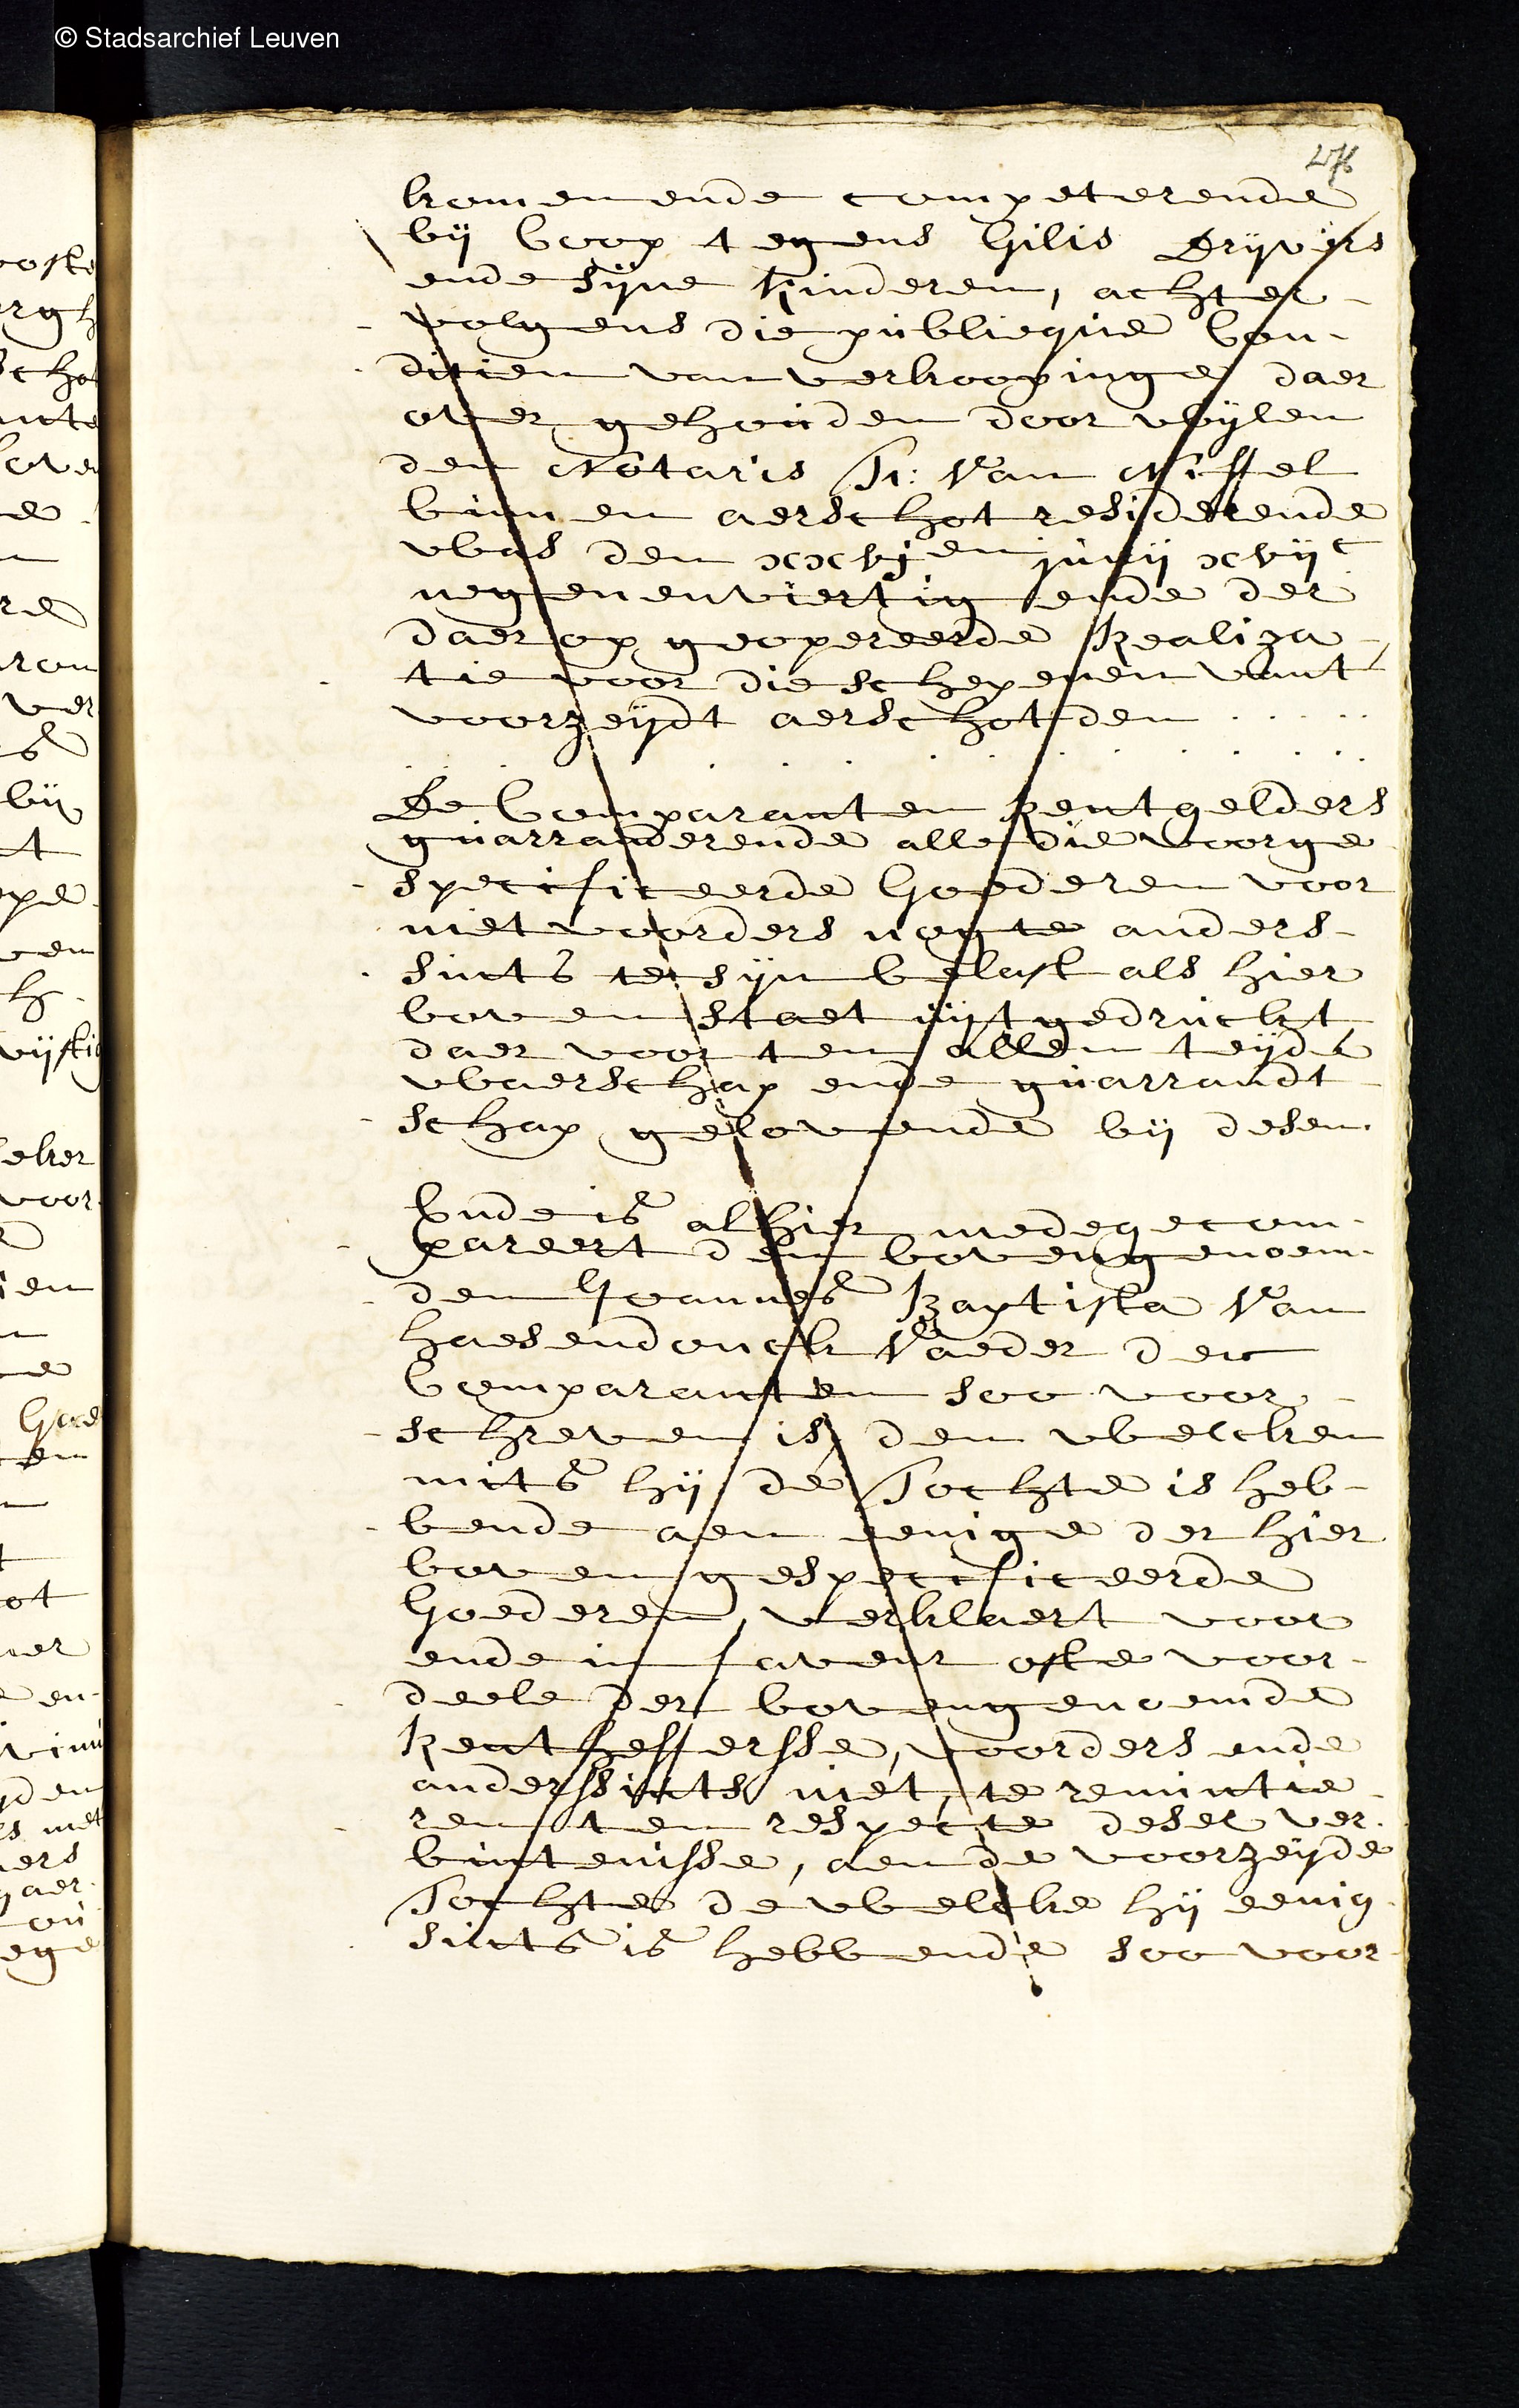 © Stadsarchief Leuven
276
komen ende competerende
bij Coop tegens Gilis Drijvers
ende sijne kinderen, achter-
volgens die publieque Con-
ditien van verkoopinge daer
over gehouden door wijlen
den Notaris Fr: Van Niffel
binnen aerschot residerende
was den xxvjen junij xvijc
negenenviertig ende der
daer op geopereerde Realiza-
tie voor die schepenen vant
voorzeijdt aerschot den .....
. . . . . . . . . .
De Comparanten Rentgelders
guarranderende alle die voorge
specificeerde Goederen voor
niet voorders nogte anders-
sints te sijn belast als hier
boven staet uijtgedruckt
daer voor ten allen teijde
waerschap ende guarrandt
schap gelovende bij desen.
Ende is alhier medegecom-
pareert den bovengenoem-
den Joannes Baptista Van
haesendonck Vaeder der
Comparanten soo voor-
schreven is, den welcken
mits hij de Tochte is heb-
bende aen eenige der hier
boven gespecificeerde
Goederen, verklaert voor
ende in faveur ofte voor-
deele der bovengenoemde
Rentheffersse, voorders ende
anderssints niet, te renuntie
ren ten respecte deser ver-
bintenisse, aen de voorzeijde
Tochte de welcke hij eenig-
sints is hebbende soo voor-
ooste
rgh
scho
nte
love
re
ron
ver
bij
t
epe
ven
h
vijftig
eker
voor
ien
Goe
ten
t
ot
ner
en-
s met
ners
aer
ou
ege